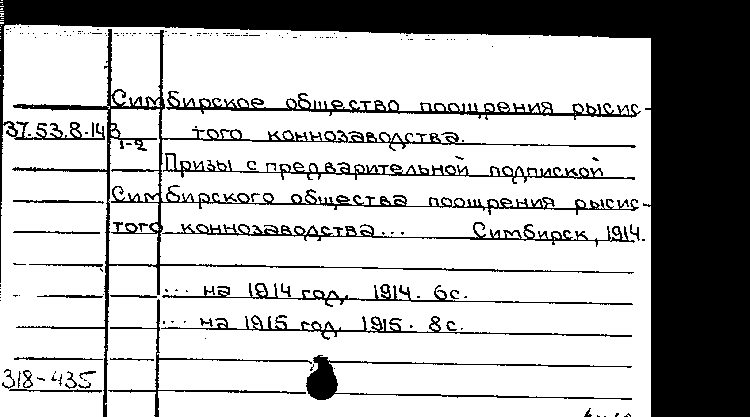 Симбирское общество поощрения рысис-
37.53.8.143 1-2 того коннозаводства.
Призы с предварительной подпиской
Симбирского общества поощрения рысис-
того коннозаводства... Симбирск, 1914.
... на 1914 год. 1914. 6с.
... на 1915 год. 1915. 8с.
318-435